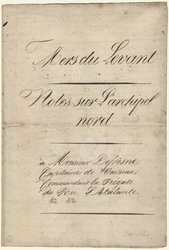 Mers du Levant
Notes sur L'archipel
nord
à Monsieur
Capitaine de Vaisseau
Commandant la Frégate
du Roi L'Atalante